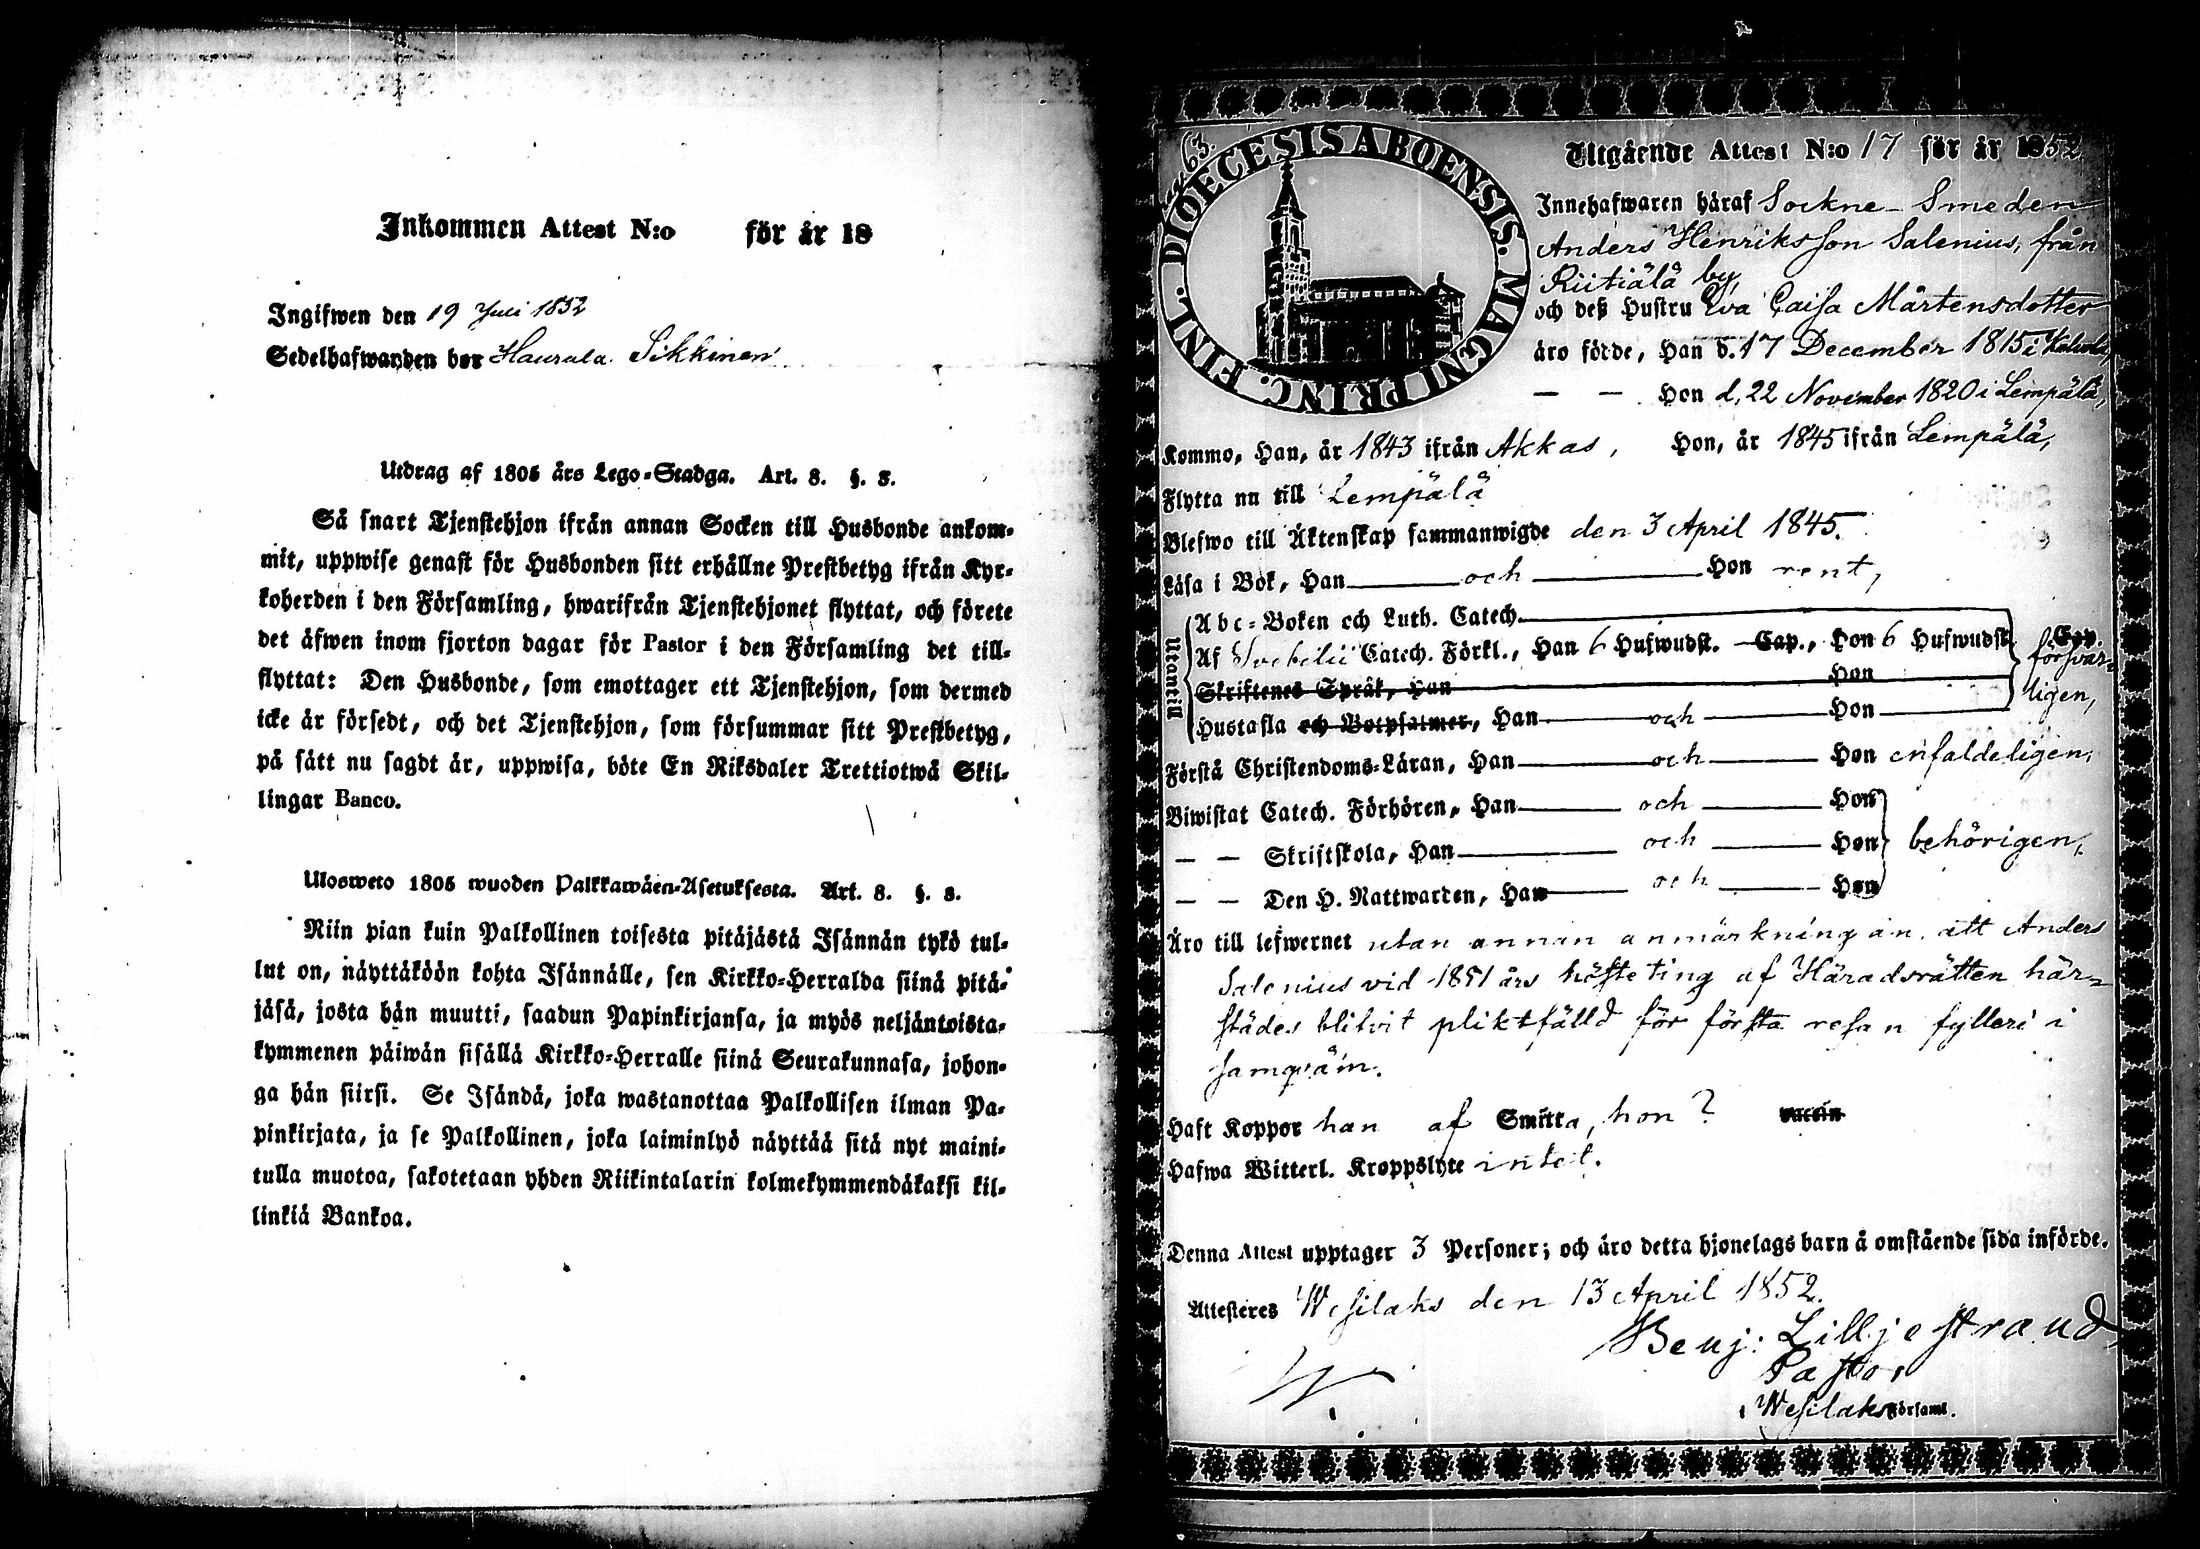 Inkommen Attest N:o för år 18
Ingifwen den 19 Juli 1852
Sedelhafwanden bor Haurala Sikkinen
Utdrag af 1805 års Lego-Stadga. Art. 8. §. 8.
Så snart Tjenstehjon ifrån annan Socken till Husbonde ankom-
mit, uppwise genast för Husbonden sitt erhållne Prestbetyg ifrån Kyr-
koherden i den Församling, hwarifrån Tjenstehjonet flyttat, och förete
det äfwen inom fjorton dagar för Pastor i den Församling det till-
flyttat: Den Husbonde, som emottager ett Tjenstehjon, som dermed
icke är försedt, och det Tjenstehjon, som försummar sitt Prestbetyg,
på sätt nu sagdt är, uppwisa, böte En Riksdaler Trettiotwå Skil-
lingar Banco.
Ulosweto 1805 wuoden Palkkawäen-Asetuksesta. Art. 8. §. 8.
Niin pian kuin Palkollinen toisesta pitäjästä Isännän tykö tul-
lut on, näyttäköön kohta Isännälle, sen Kirkko-Herralda siinä pitä-
jäsä, josta hän muutti, saadun Papinkirjansa, ja myös neljäntoista-
kymmenen päiwän sisällä Kirkko-Herralle siinä Seurakunnasa, johon-
ga hän siirsi. Se Isändä, joka wastanottaa Palkollisen ilman Pa-
pinkirjata, ja se Palkollinen, joka laiminlyö näyttää sitä nyt maini-
tulla muotoa, sakotetaan yhden Riikintalarin kolmekymmendäkaksi kil-
linkiä Bankoa.
63.
DIOECESIS ABOENSIS. MAGNI PRINC. FINL.
Utgående Attest N:o 17 för år 1852
Innehafwaren häraf Sockne-Smeden
Anders Henriksson Salenius, från
Riitiälä by,
och deß Hustru Eva Caisa Mårtensdotter
äro födde, Han d. 17 December 1815 i
— — Hon d. 22 November 1820 i Lempälä,
Kommo, Han, år 1843 ifrån Akkas, Hon, år 1845 ifrån Lempälä,
Flytta nu till Lempälä
Blefwo till Äktenskap sammanwigde den 3 April 1845.
Läsa i Bok, Han och Hon rent,
Utantill
Abc-Boken och Luth. Catech.
Af Svebelii Catech. Förkl., Han 6 Hufwudst. Cap., Hon 6 Hufwudst. Cap.
försvar-
ligen,
Skriftenes Språk, Han Hon
Hustafla och Botpsalmer, Han och Hon
Förstå Christendoms-Läran, Han och Hon enfaldeligen,
Biwistat Catech. Förhören, Han och Hon
— — Skriftskola, Han och Hon behörigen,
— — Den H. Nattwarden, Han och Hon
Äro till lefwernet utan annan anmärkning än, att Anders
Salenius vid 1851 års hösteting af Häradsrätten här-
städes blifvit pliktfälld för första resan fylleri i
samqväm.
Haft Koppor han af Smitta, hon? vaccin
Hafwa Witterl. Kroppslyte intet.
Denna Attest upptager 3 Personer; och äro detta hjonelags barn å omstående sida införde.
Attesteres Wesilaks den 13 April 1852.
Benj: Lilljestrand
Pastor
i Wesilaks Församl.